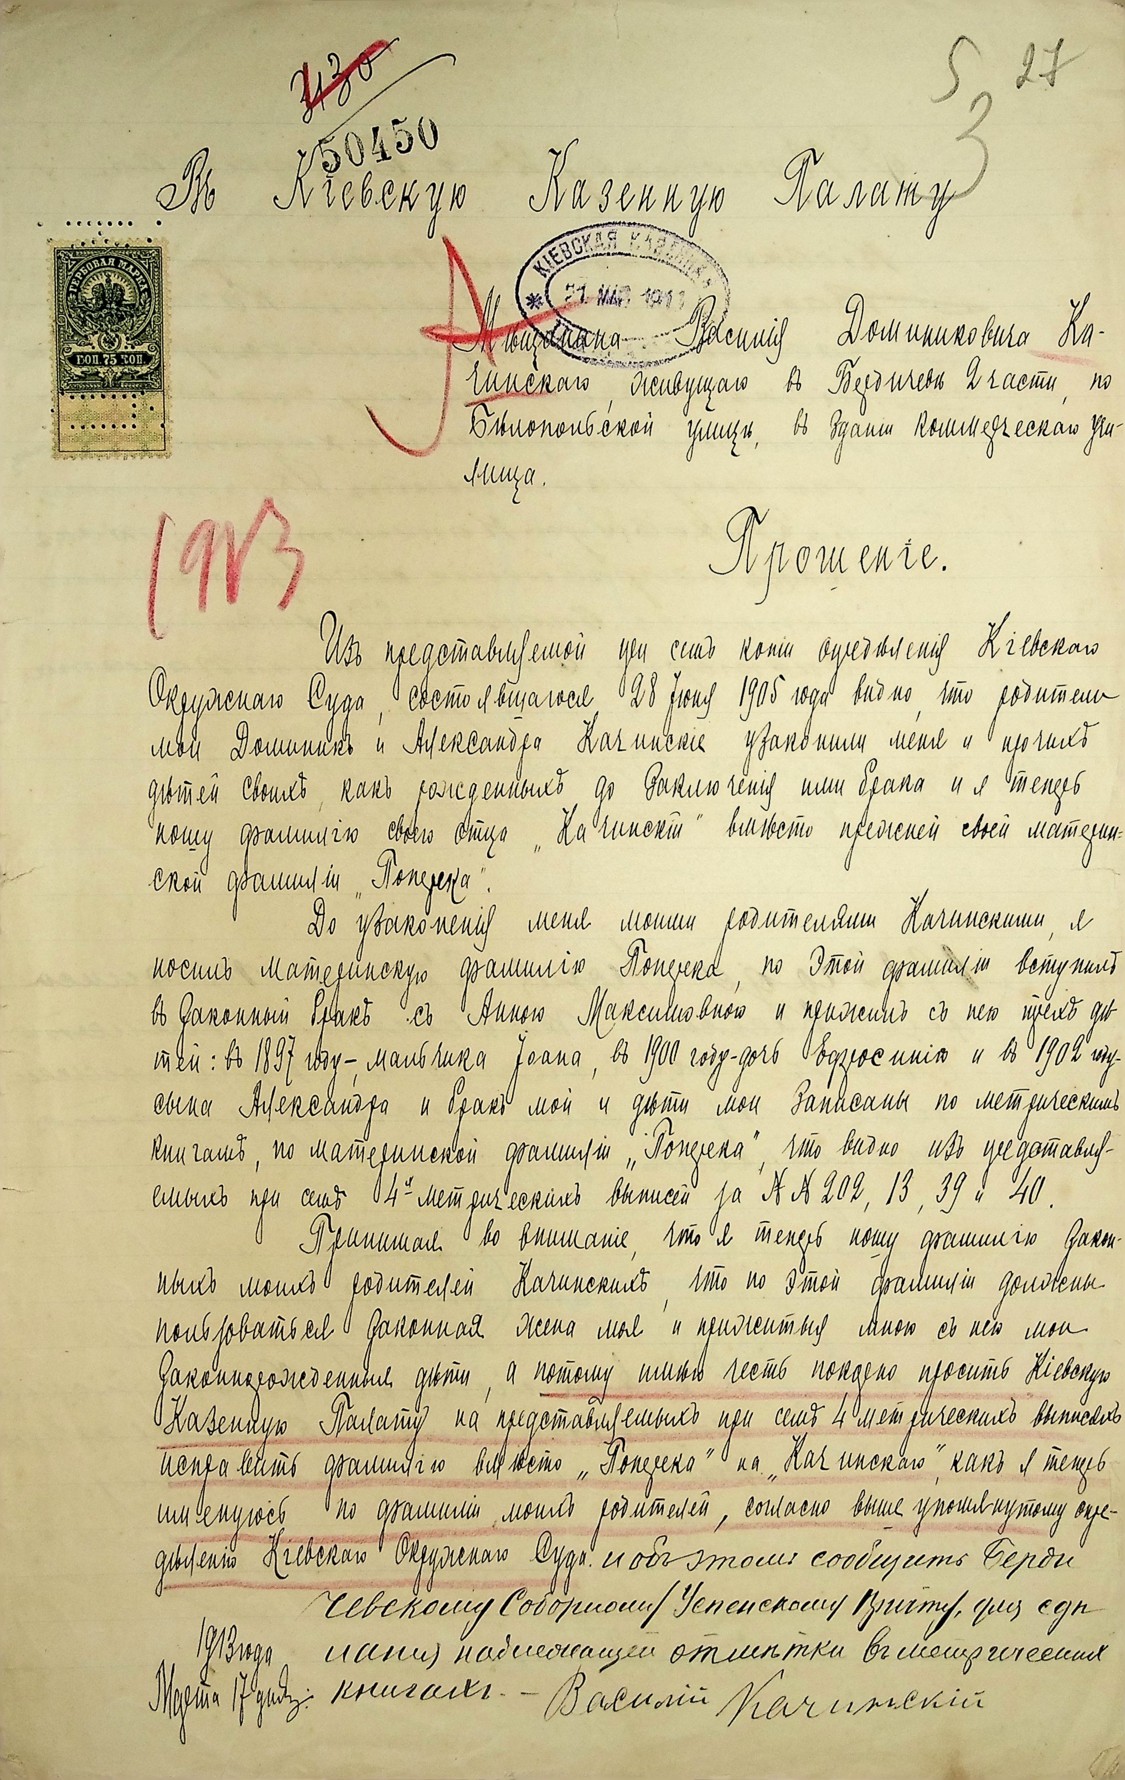 3130
50450
5 27
3
Въ Кіевскую Казенную Палату
ГЕРБОВАЯ МАРКА
КОП. 75 КОП.
КІЕВСКАЯ КАЗЕННАЯ
21 МАР 1913
Мѣщанина Василія Доминиковича Ка-
чинскаго, живущаго въ Бердичевѣ 2 части, по
Бѣлопольской улицѣ, въ зданіи Коммерческаго учи-
лища.
1913
Прошеніе.
Изъ представляемой при семъ копіи опредѣленія Кіевскаго
Окружнаго Суда, состоявшагося 28 Іюня 1905 года видно, что родители
мои Доминикъ и Александра Качинскіе узаконили меня и прочихъ
дѣтей своихъ, какъ рожденныхъ до заключенія ими брака и я теперь
ношу фамилію своего отца „Качинскій" вмѣсто прежней своей материн-
ской фамиліи „Поперека".
До узаконенія меня моими родителями Качинскими, я
носилъ материнскую фамилію Поперека, по этой фамиліи вступилъ
въ законный бракъ съ Анною Максимовною и прижилъ съ нею трехъ дѣ
тей: въ 1897 году-, мальчика Іоана, въ 1900 году-дочь Ефросинію и въ 1902 году-
сына Александра и бракъ мой и дѣти мои записаны по метрическимъ
книгамъ, по материнской фамиліи „Поперека", что видно изъ представля-
емыхъ при семъ 4-х метрическихъ выписей за N N 202, 13, 39 и 40.
Принимая во вниманіе, что я теперь ношу фамилію закон-
ныхъ моихъ родителей Качинскихъ, что по этой фамиліи должны
пользоваться законная жена моя и прижитыя мною съ нею мои
законнорожденныя дѣти, а потому имѣю честь покорно просить Кіевскую
Казенную Палату на представляемыхъ при семъ 4 метрическихъ выписяхъ
исправить фамилію вмѣсто „Поперека" на „Качинскаго", какъ я теперь
именуюсь по фамиліи моихъ родителей, согласно выше упомянутому опре-
дѣленію Кіевскаго Окружнаго Суда. и объ этомъ сообщить Берди
чевскому Соборному Успенскому Причту, для сдѣ
ланія надлежащей отмѣтки въ метрическихъ
книгахъ. –
1913 года
Марта 17 дня.
Василій Качинскій